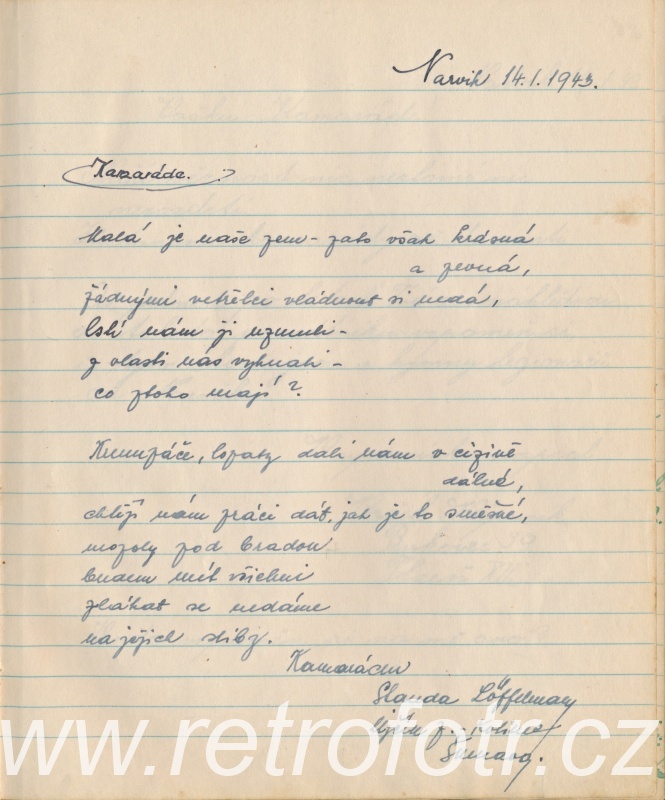 Narvik 14.1.1943.
Kamaráde.
Malá je naše zem - zato však krásná
a pevná,
žádnými vetřelci vládnout si nedá,
lstí nám ji uzmuli -
z vlasti nás vyhnali -
co ztoho mají?
Krumpáče, lopaty dali nám v cizině
dálné,
chtějí nám práci dát, jak je to směšné,
mozoly pod bradou
budem mít všichni
zlákat se nedáme
na jejich sliby.
Kamarádu
Standa Löffelman
Újezd p.
www.retrofotr.cz